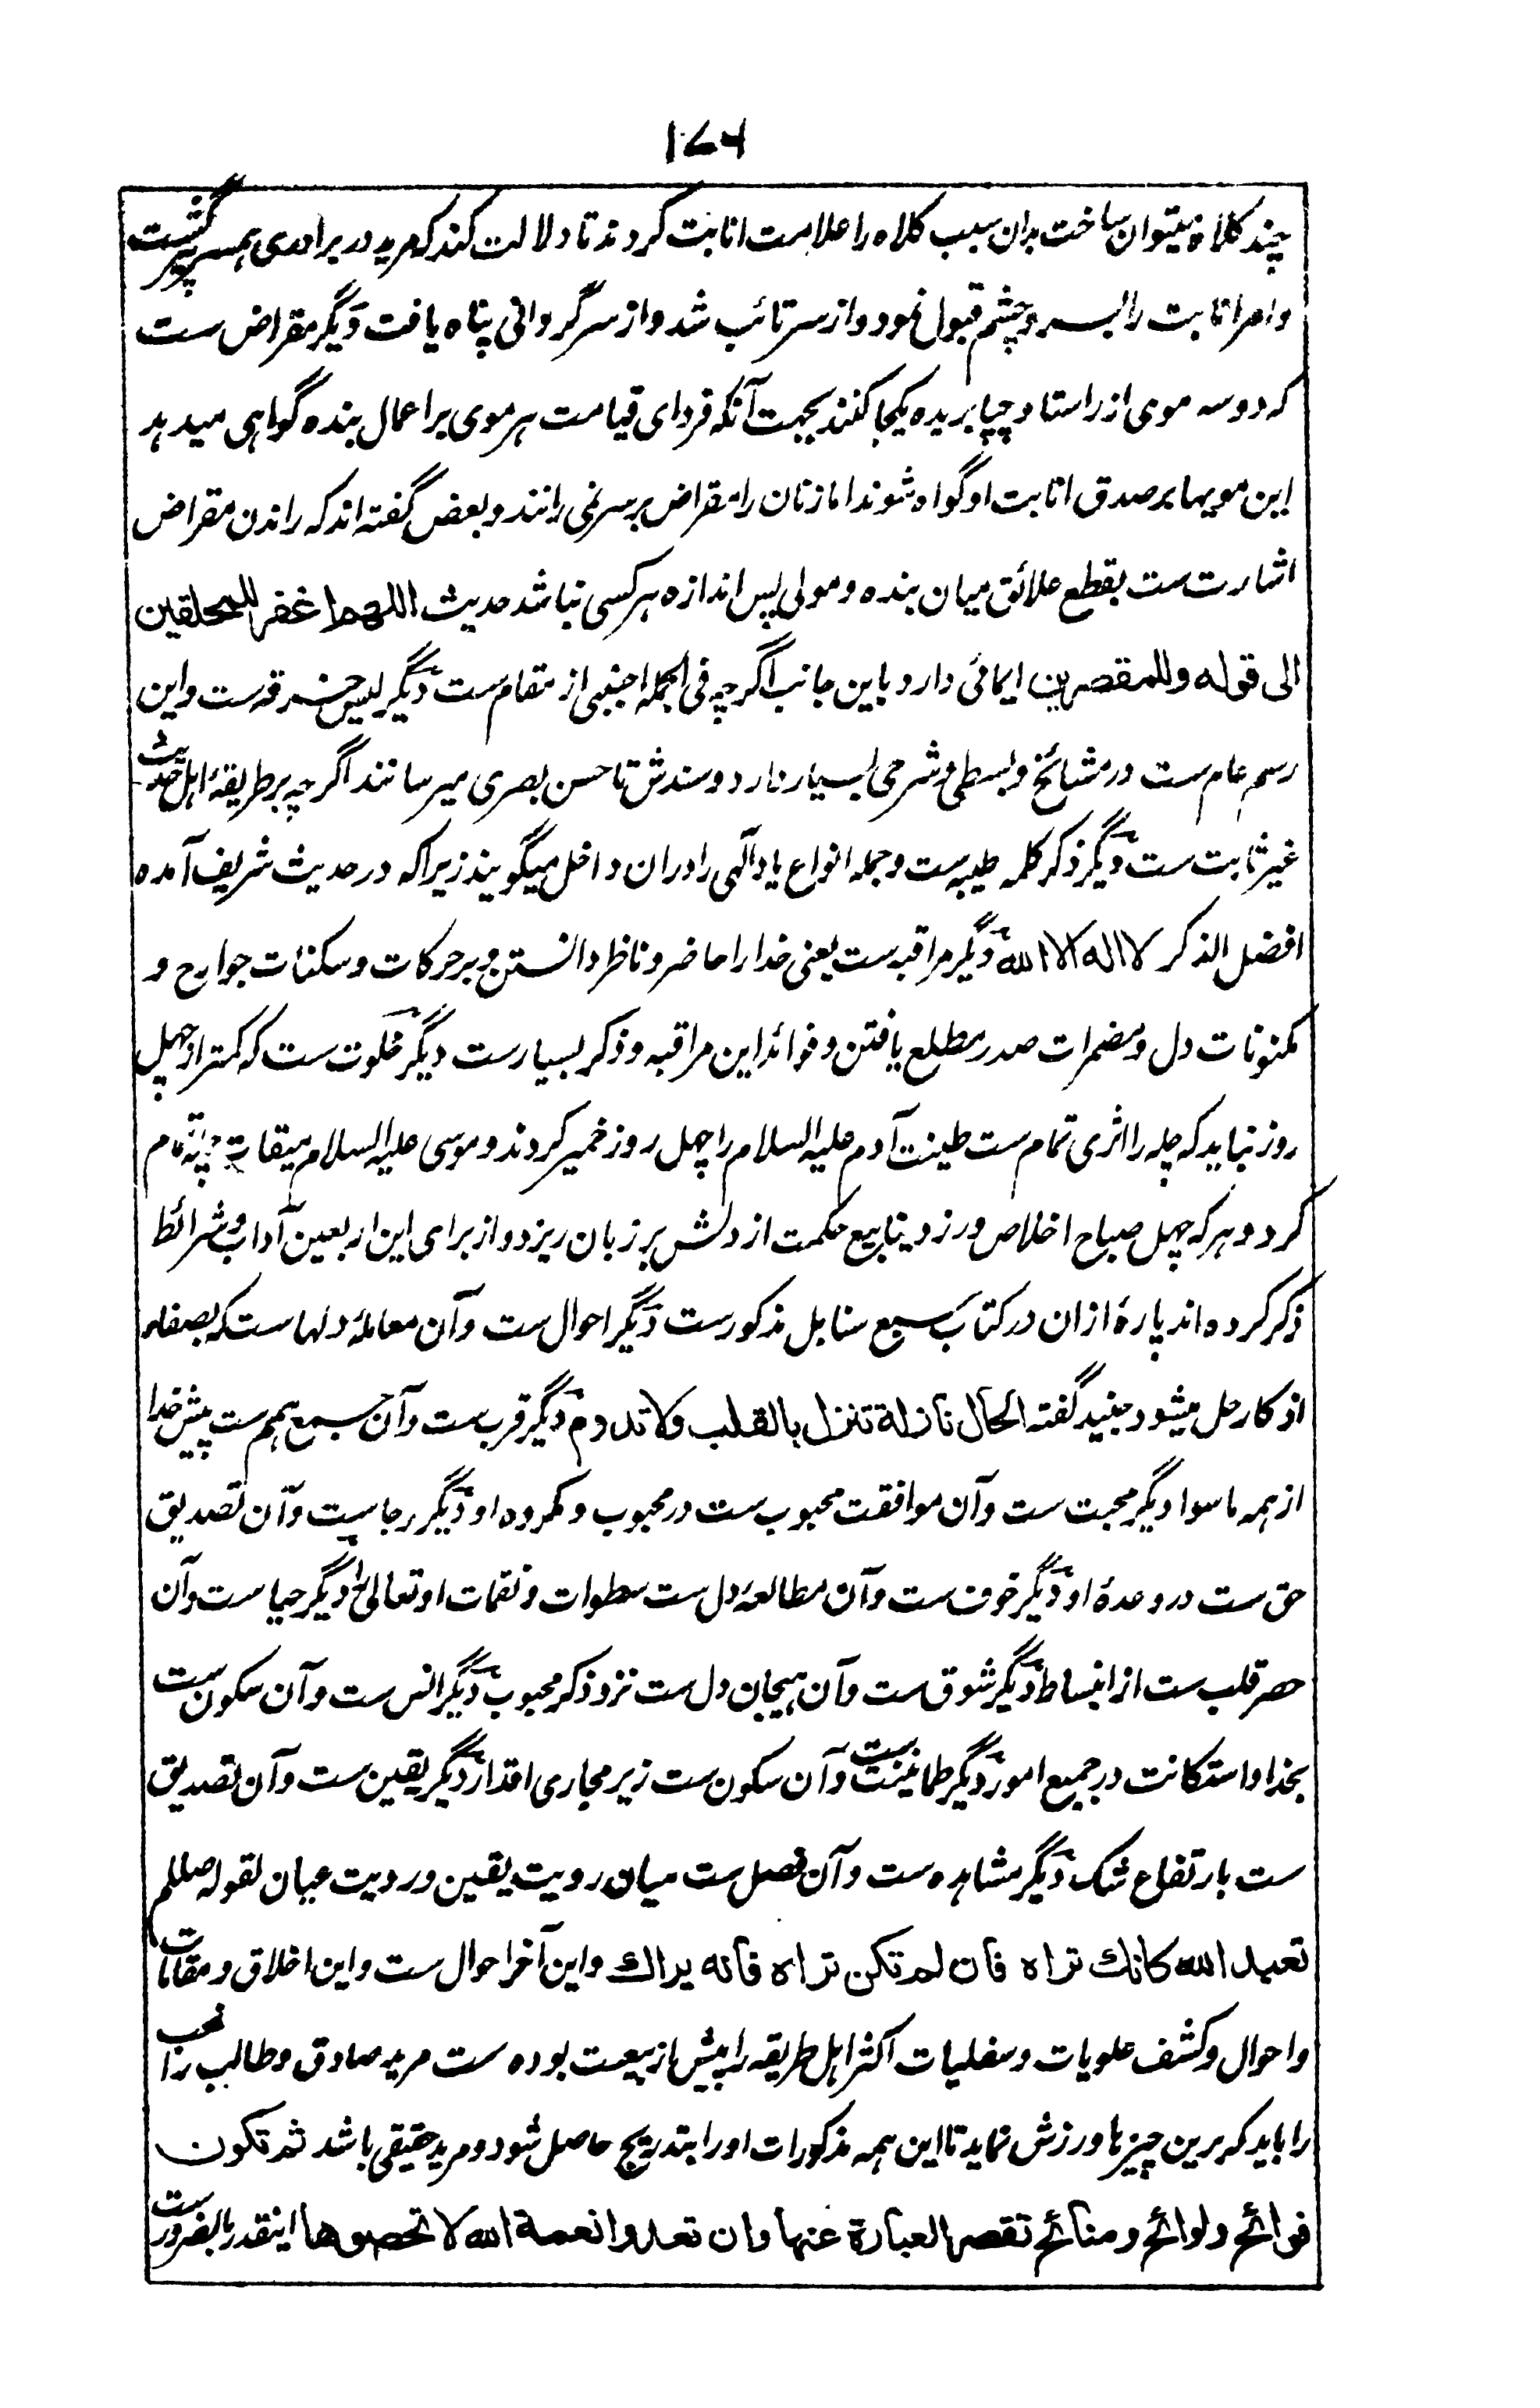 ۱۷۶
چند کلاه نیتوان ساخت بدان سبب کلاه را علامت انابت کردند تا دلالت کند که مرید در برادری همسر پیر گشت
و امر انابت را بسر و چشم قبول نمود و از سر تائب شد و از سرگردانی پناه یافت دیگر مقراض ست
که دو سه موی از راستا و چپا بریده یکجا کنند بجهت آنکه فردای قیامت هر موی بر اعمال بنده گواهی میدهد
این مویها بر صدق انابت او گواه شوند اما زنان را مقراض بر سر نمی رانند و بعض گفته اند که راندن مقراض
اشارت ست بقطع علائق میان بنده و مولی پس اندازه هر کسی نباشد حدیث اللهم اغفر للمحلقین
الی قوله وللمقصرین ایمائی دارد باین جانب اگرچه فی الجمله اجنبی از مقام ست دیگر لبس خرقه ست و این
رسم عام ست در مشائخ و بسطی و شرحی بسیار دارد و سندش تا حسن بصری میرسانند اگرچه بر طریقۀ اهل حدیث
غیر ثابت ست دیگر ذکر کلمه طیبه ست و جمله انواع یاد الهی را دران داخل میگویند زیرا که در حدیث شریف آمده
افضل الذکر لا اله الا الله دیگر مراقبه ست یعنی خدا را حاضر و ناظر دانستن و بر حرکات و سکنات جوارح و
مکنونات دل و مضمرات صدر مطلع یافتن و فوائد این مراقبه و ذکر بسیارست دیگر خلوت ست که کمتر از چهل
روز نباید که چله را اثری تمام ست طینت آدم علیه السلام را چهل روز خمیر کردند و موسی علیه السلام میقات تمام
کرد و هر که چهل صباح اخلاص ورزد ینابیع حکمت از دلش بر زبان ریزد و از برای این اربعین آداب و شرائط
ذکر کرده اند پارۀ ازان در کتاب سبع سنابل مذکورست دیگر احوال ست و آن معاملۀ دلهاست که بصفاء
اذکار حل میشود جنید گفته الحال نازلة تنزل بالقلب ولا تدوم دیگر قرب ست و آن جمع همم ست پیش خدا
از همه ماسوا دیگر محبت ست و آن موافقت محبوب ست در محبوب و مکروه او دیگر رجاست و آن تصدیق
حق ست در وعدۀ او دیگر خوف ست و آن مطالعۀ دل ست سطوات و نقمات او تعالی را دیگر حیا ست و آن
حصر قلب ست از انبساط دیگر شوق ست و آن هیجان دل ست نزد ذکر محبوب دیگر انس ست و آن سکون ست
بخدا و استکانت در جمیع امور دیگر طمانینت ست و آن سکون ست زیر مجاری اقدار دیگر یقین ست و آن تصدیق
ست بارتفاع شک دیگر مشاهده ست و آن فصل ست میان رویت یقین و رویت عیان لقوله صللم
تعبد الله کانک تراه فان لم تکن تراه فانه یراک و این آخر احوال ست و این اخلاق و مقامات
و احوال و کشف علویات و سفلیات اکثر اهل طریقه را پیش از بیعت بوده ست مرید صادق و طالب راغب
را باید که برین چیزها ورزش نماید تا این همه مذکورات او را بتدریج حاصل شود و مرید حقیقی باشد ثم تکون
فواتح و لوائح و منائح تقصر العبارة عنها وان تعدوا نعمة الله لا تحصوها اینقدر بالضرورست